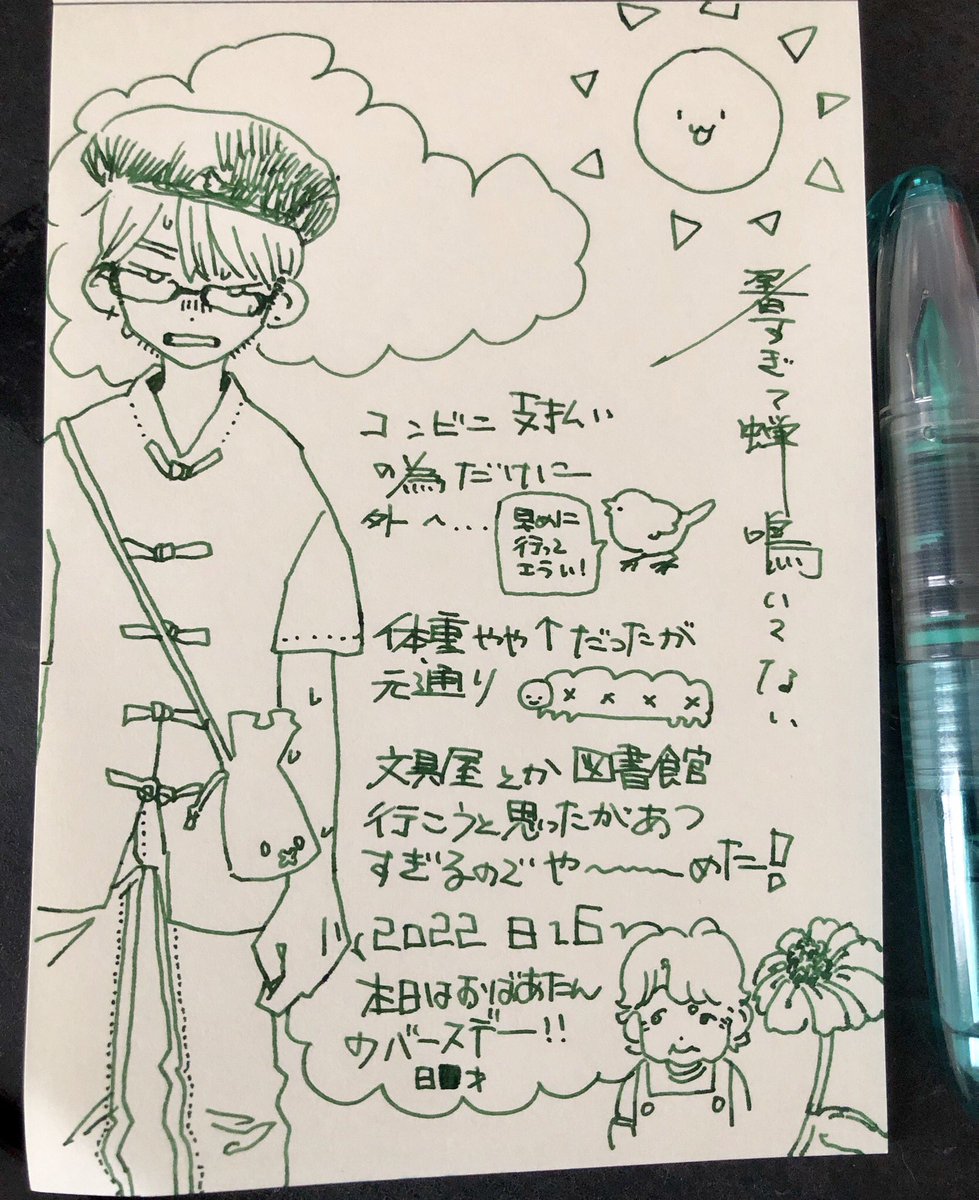 暑すぎて蝉鳴いてない
コンビニ支払い
の為だけに
外へ...
早めに
行って
エラい!
体重やや↑だったが
元通り
文具屋とか図書館
行こうと思ったがあつ
すぎるのでや〜〜めた!
2022 8 16
本日はおばあたん
のバースデー!!
8■才